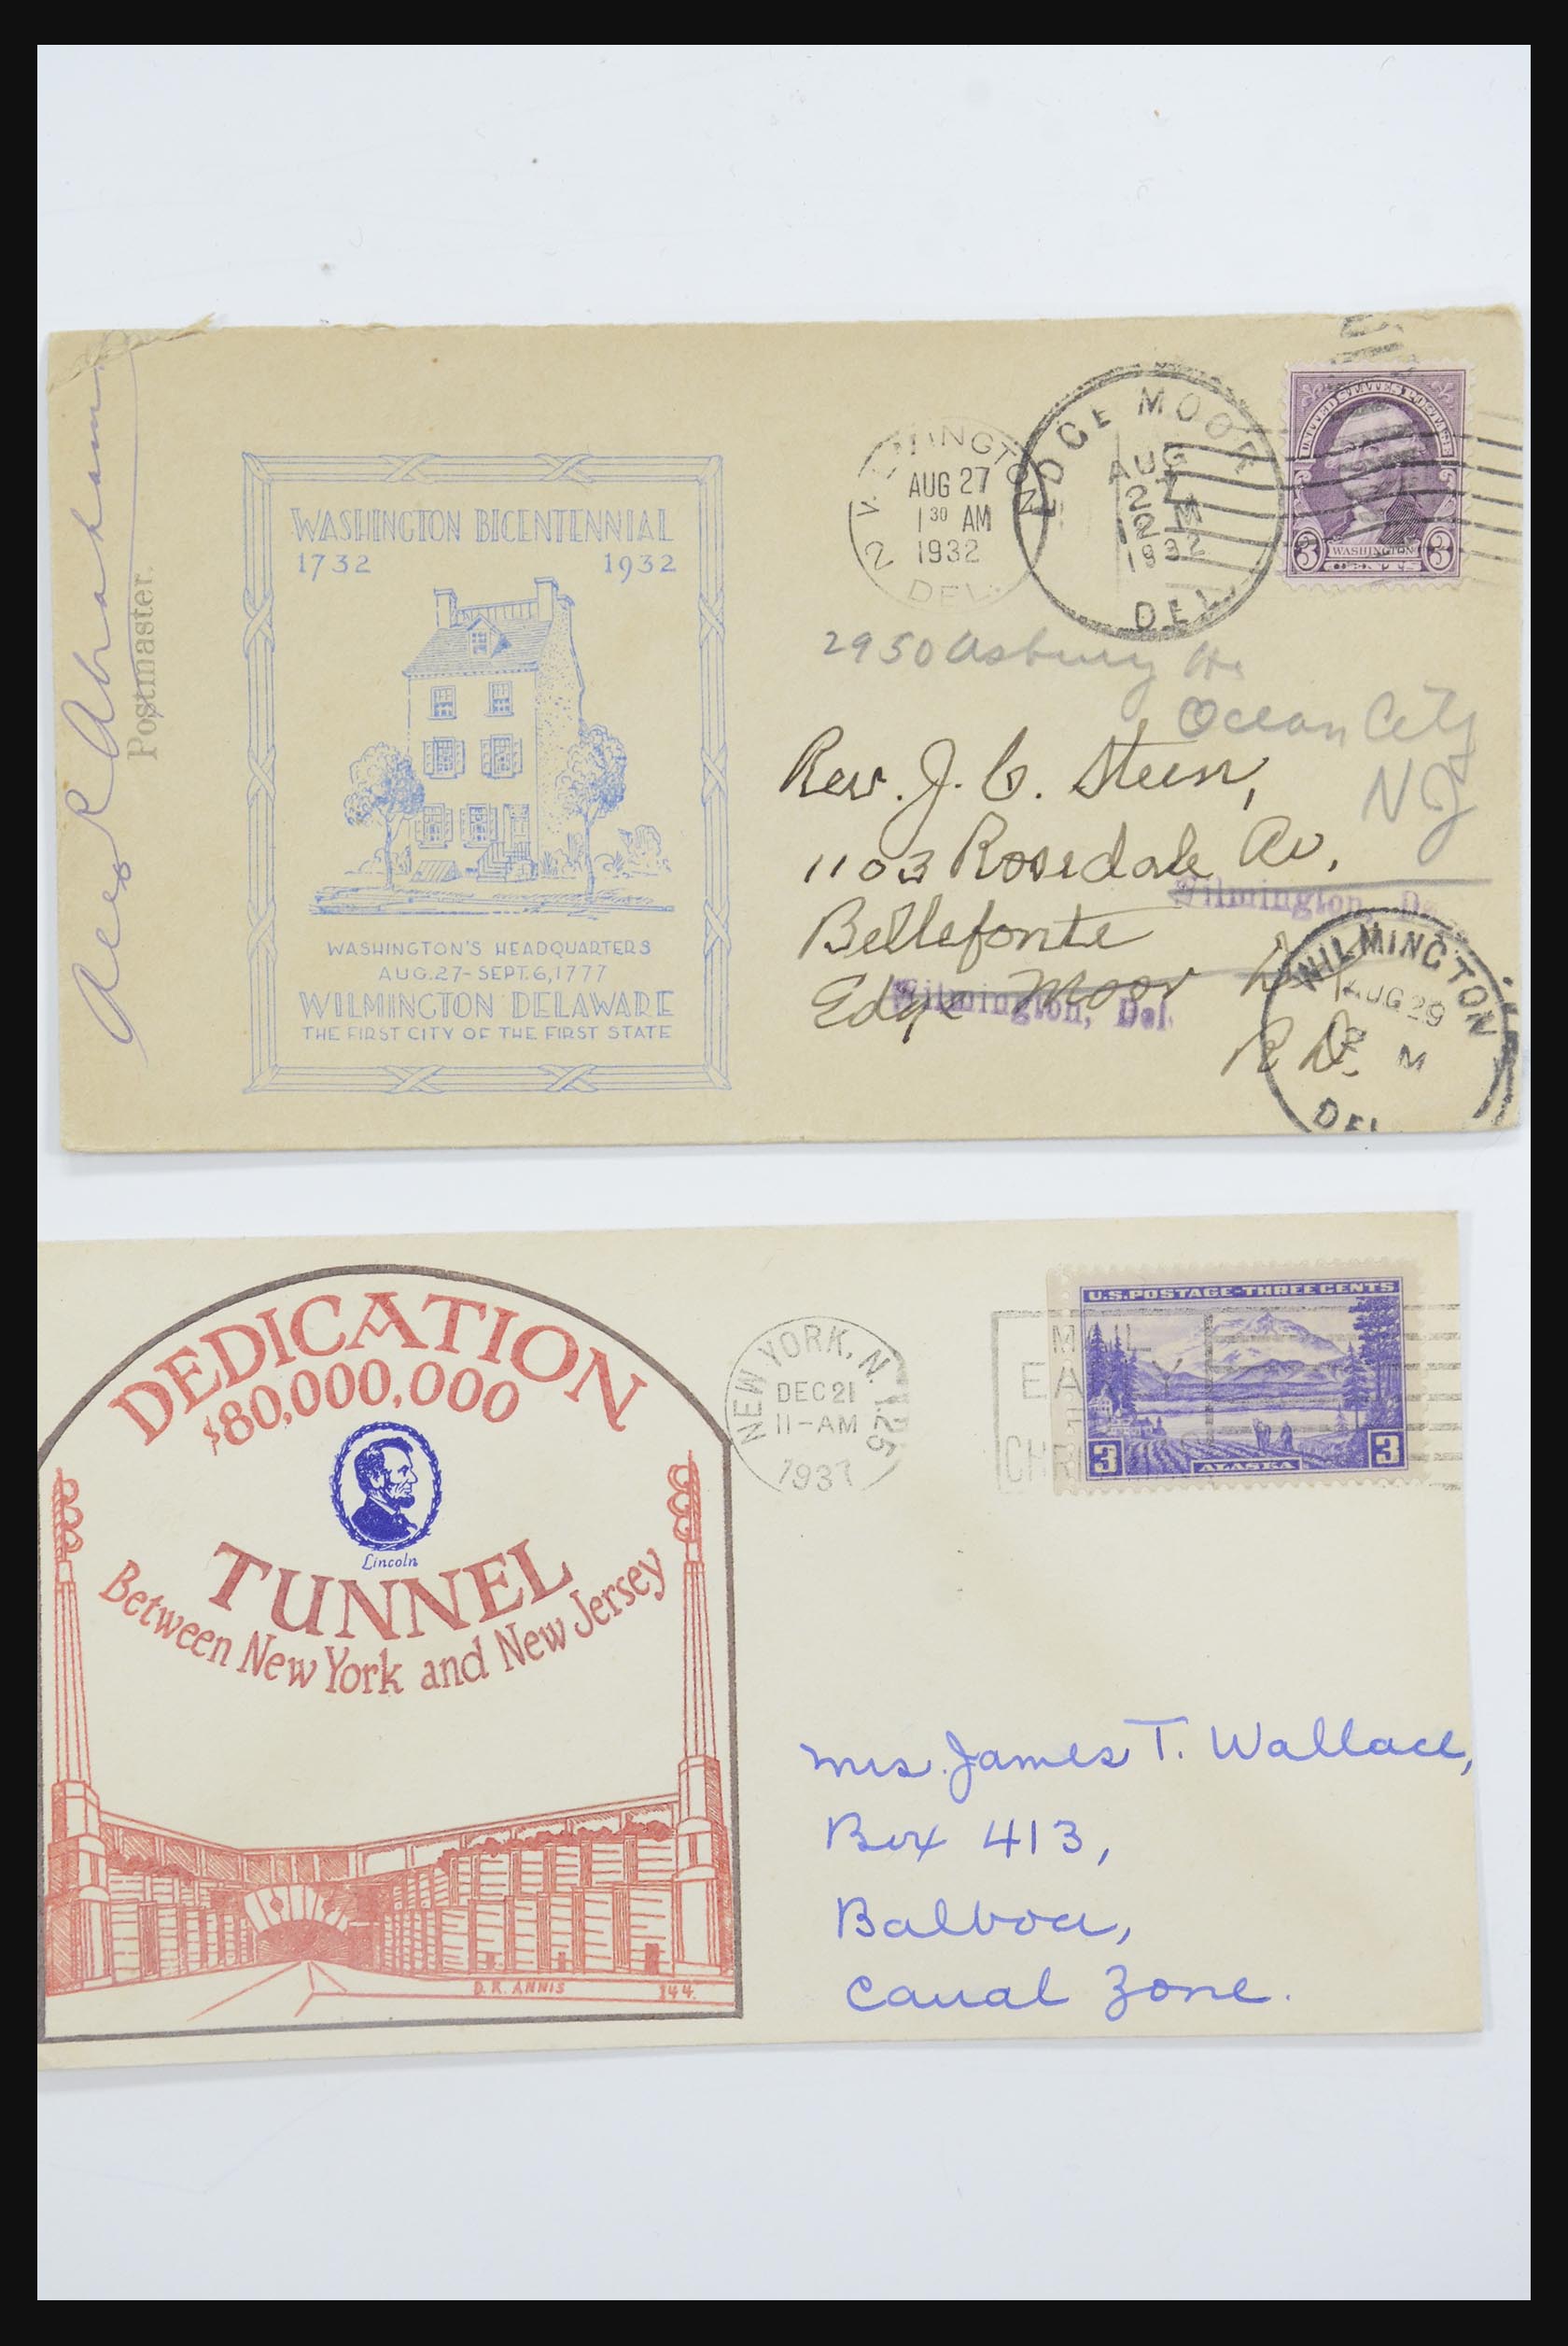 Postmaster.
WASHINGTON BICENTENNIAL
1732 1932
WASHINGTON'S HEADQUARTERS
AUG.27-SEPT.6,1777
WILMINGTON DELAWARE
THE FIRST CITY OF THE FIRST STATE
WILMINGTON
AUG 27
1 30 AM
1932
DEL.
2
EDGE MOOR
AUG
27
1932
DEL.
UNITED STATES POSTAGE
3 WASHINGTON 3
2950 Asbury
Ocean City
NJ
Rev. J. C. Steen,
1103 Rosedale Av,
Wilmington, Del.
Bellefonte
Edge Moor
Wilmington, Del.
R D.
WILMINGTON
AUG 29
M
DEL.
DEDICATION
$80,000,000
Lincoln
TUNNEL
Between New York and New Jersey
D.R. ANNIS 144.
NEW YORK, N.Y. 25
DEC 21
11-AM
1937
MAIL
EARLY
CHRI
U.S. POSTAGE-THREE CENTS
3 ALASKA 3
Mrs. James T. Wallace,
Box 413,
Balboa,
Canal Zone.